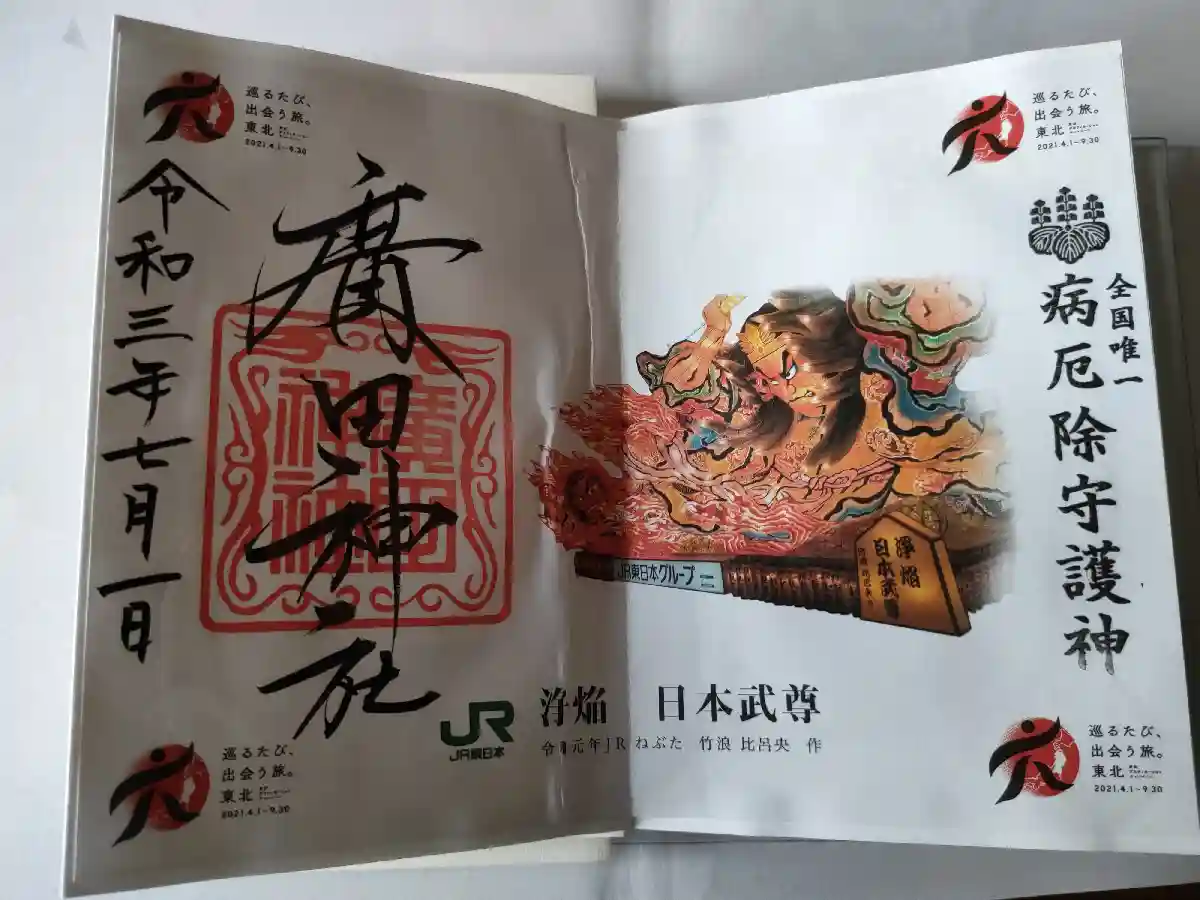 巡るたび、
出会う旅。
東北
2021.4.1〜9.30
令和三年七月一日
廣田神社
廣田
神社
巡るたび、
出会う旅。
東北
2021.4.1〜9.30
巡るたび、
出会う旅。
東北
2021.4.1〜9.30
全国唯一
病厄除守護神
JR東日本グループ
淨焔
日本武尊
JR
JR東日本
淨焔 日本武尊
令和元年JRねぶた 竹浪 比呂央 作
巡るたび、
出会う旅。
東北
2021.4.1〜9.30